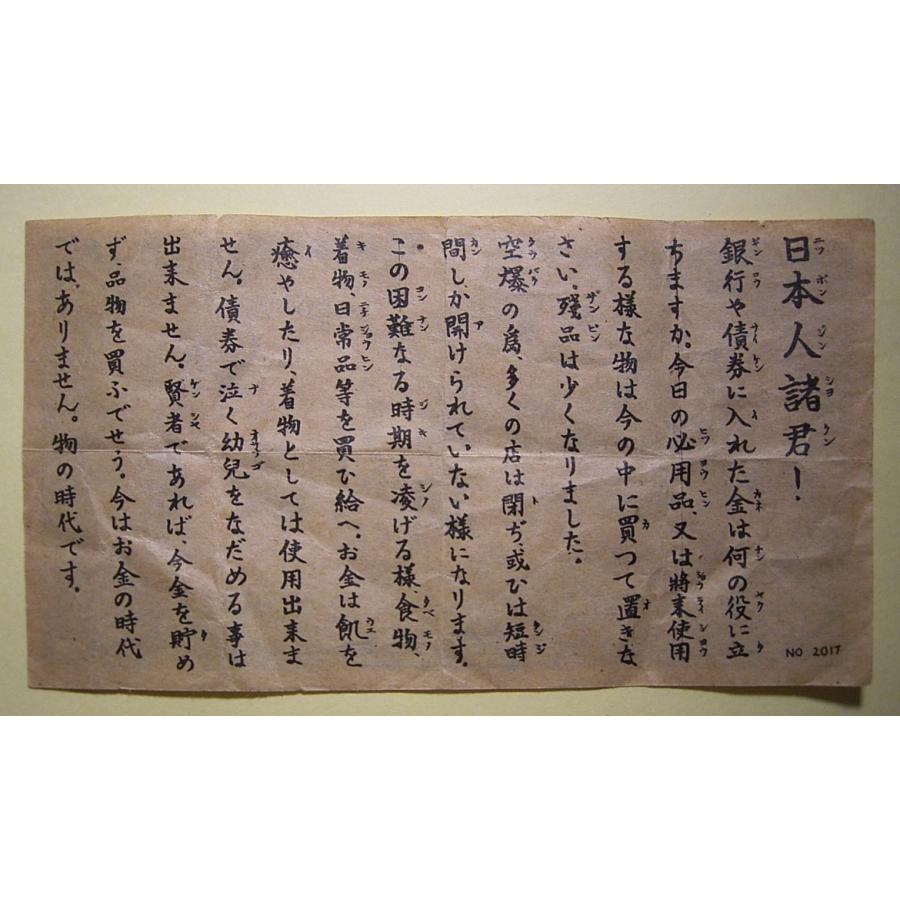 日本人諸君！
銀行や債券に入れた金は何の役に立
ちますか。今日の必用品、又は將来使用
する様な物は今の中に買つて置きな
さい。殘品は少くなりました。
空爆の爲、多くの店は閉ぢ、或ひは短時
間しか開けられていない様になります。
この困難なる時期を凌げる様、食物、
着物、日常品等を買ひ給へ。お金は飢を
癒やしたり、着物としては使用出来ま
せん。債券で泣く幼兒をなだめる事は
出来ません。賢者であれば、今金を貯め
ず、品物を買ふでせう。今はお金の時代
では、ありません。物の時代です。
NO 2017